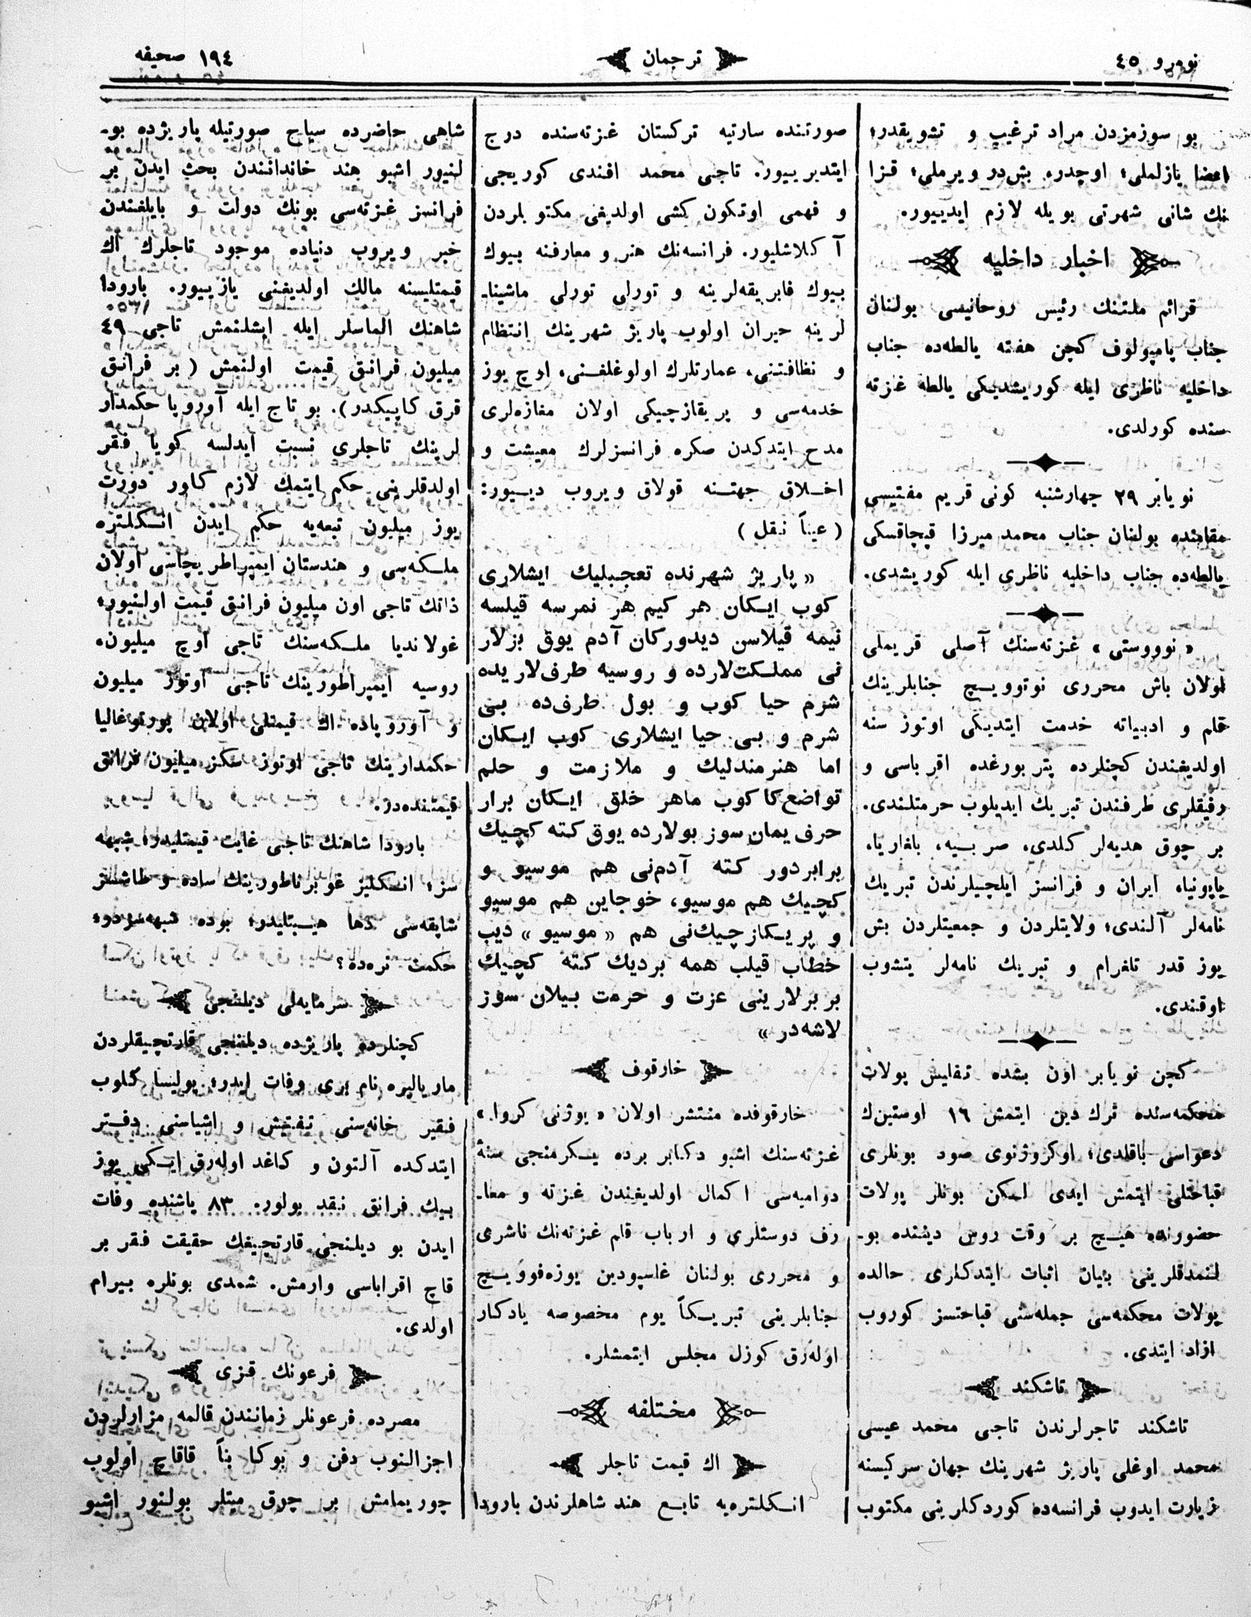 نومرو ٤٥
ترجمان
١٩٤ صحیفه
بو سوزمزدن مراد ترغیب و تشویقدر؛
اعضا یازلملی؛ اوچدره بش‌در ویرملی؛ قزا
نك شانی شهرتی بویله لازم ایدییور.
اخبار داخلیه
قرائم ملتنك رئیس روحانیسی بولنان
جناب پامپولوف كچن هفته یالطه‌ده جناب
داخلیه ناظری ایله كوریشدیكی یالطه غزته
سنده كورلدی.
نویابر ٢٩ چهارشنبه كونی قریم مفتیسی
مقامنده بولنان جناب محمد میرزا قپچاقسكی
یالطه‌ده جناب داخلیه ناظری ایله كوریشدی.
« نوووستی » غزته‌سنك آصلی قریملی
اولان باش محرری نوتوویچ جنابلرینك
قلم و ادبیاته خدمت ایتدیكی اوتوز سنه
اولدیغندن كچنلرده پتربورغده اقرباسی و
رفیقلری طرفندن تبریك ایدیلوب حرمتلندی.
بر چوق هدیه‌لر كلدی. صربیه، بلغاریا،
یاپونیاه ایران و فرانسز ایلچیلرندن تبریك
نامه‌لر آلندی؛ ولایتلردن و جمعیتلردن بش
یوز قدر تلغرام و تبریك نامه‌لر یتشوب
اوقندی.
كچن نویابر اون بشده تفلیس پولات
محكمه‌سنده ترك دین ایتمش ١٦ اوستین‌ك
دعواسی باقلدی؛ اوكروژنوی صود بونلری
قباحتلی ایتمش ایدی لمكن بونلر پولات
حضورنده هیچ بر وقت روس دیننده بو-
لنمدقلرینی بیان اثبات ایتدكلری حالده
پولات محكمه‌سی جمله‌سنی قباحتسز كوروب
ازاد ایتدی.
تاشكند
تاشكند تاجرلرندن تاجی محمد عیسی
محمد اوغلی پاریژ شهرینك جهان سركیسنه
زیارت ایدوب فرانسه‌ده كوردكلرینی مكتوب
صورتنده سارتیه تركستان غزته‌سنده درج
ایتدیرییور. تاجی محمد افندی كوریجی
و فهمی اوتكون كشی اولدیغی مكتوبلردن
آكلاشلیور. فرانسه‌نك هنر و معارفنه بیوك
بیوك فابریقه‌لرینه و تورلی تورلی ماشینا-
لرینه حیران اولوب پاریژ شهرینك انتظام
و نظافتنی، عمارتلرك اولوغلغنی، اوچ یوز
خدمه‌سی و پریقازچیكی اولان مغازه‌لری
مدح ایتدكدن صكره فرانسزلرك معیشت و
اخلاق جهتنه قولاق ویروب دییور:
( عیناً نقل )
« پاریژ شهرنده تعجبلیك ایشلاری
كوب ایكان هر كیم هر نمرسه قیلسه
نیمه قیلاسن دیدوركان آدم یوق بزلار
نی مملكت‌لارده و روسیه طرف‌لاریده
شرم حیا كوب و بول طرف‌ده بی
شرم و بی حیا ایشلاری كوب ایكان
اما هنرمندلیك و ملازمت و حلم
تواضع‌كا كوب ماهر خلق ایكان برار
حرف یمان سوز بولارده یوق كته كچیك
برابردور كته آدم‌نی هم موسیو و
كچیك هم موسیو، خوجاین هم موسیو
و پریكازچیك‌نی هم « موسیو » دیب
خطاب قیلب همه بردیك كته كچیك
بربرلارینی عزت و حرمت بیلان سوز
لاشه‌در »
خارقوف
خارقوفده منتشر اولان « یوژنی كروا. »
غزته‌سنك اشبو دكابر برده یكرمنجی سنهٔ
دوامیه‌سی اكمال اولدیغندن غزته و معا-
رف دوستلری و ارباب قلم غزته‌نك ناشری
و محرری بولنان غاسپودین یوزه‌فوویچ
جنابلرینی تبریكاً یوم مخصوصه یادكار
اوله‌رق كوزل مجلس ایتمشلر.
مختلفه
اك قیمت تاجلر
انكلتره‌یه تابع هند شاهلرندن بارودا
شاهی حاضرده سیاح صورتیله پاریژده بو-
لنیور اشبو هند خاندانندن بحث ایدن بر
فرانسز غزته‌سی بونك دولت و بایلغندن
خبر ویروب دنیاده موجود تاجلرك اك
قیمتلیسنه مالك اولدیغنی یازییور. بارودا
شاهنك الماسلر ایله ایشلنمش تاجی ٤٩
میلیون فرانق قیمت اولنمش ( بر فرانق
قرق كاپیكدر). بو تاج ایله آوروپا حكمدار
لرینك تاجلری نسبت ایدلسه كویا فقر
اولدقلرینی حكم ایتمك لازم كلور دورت
یوز میلیون تبعه‌یه حكم ایدن انكلتره
ملكه‌سی و هندستان ایمپراطریچاسی اولان
ذاتك تاجی اون میلیون فرانق قیمت اولنیور؛
غولاندیا ملكه‌سنك تاجی اوچ میلیون،
روسیه ایمپراطورینك تاجی اوتوز میلیون
و آوروپاده اك قیمتلی اولان پورتوغالیا
حكمدارینك تاجی اوتوز سكز میلیون فرانق
قیمتنده‌در.
بارودا شاهنك تاجی غایت قیمتلیدر؛ شبهه
سز؛ انسكلیز غوبرناطورینك ساده و طاشسز
شاپقه‌سی دها هیبتلیدر؛ بوده شبهه‌سزدر؛
حكمت نره‌ده؟
سرمایه‌لی دیلنجی
كچنلرده پاریژده دیلنجی قارتچیقلردن
ماریالیره نام بری وفات ایدر؛ پولیسا كلوب
فقیر خانه‌سنی تفتیش و اشیاسنی دفتر
ایتدكده آلتون و كاغد اوله‌رق ایكی یوز
بیك فرانق نقد بولور. ٨٣ یاشنده وفات
ایدن بو دیلنجی قارتچیغك حقیقت فقر بر
قاچ اقرباسی وارمش. شمدی بونلره بیرام
اولدی.
فرعونك قزی
مصرده فرعونلر زمانندن قالمه مزارلردن
اجزالنوب دفن و بوكا بناً قاقاچ اولوب
چوریمامش بر چوق میتلر بولنور اشبو